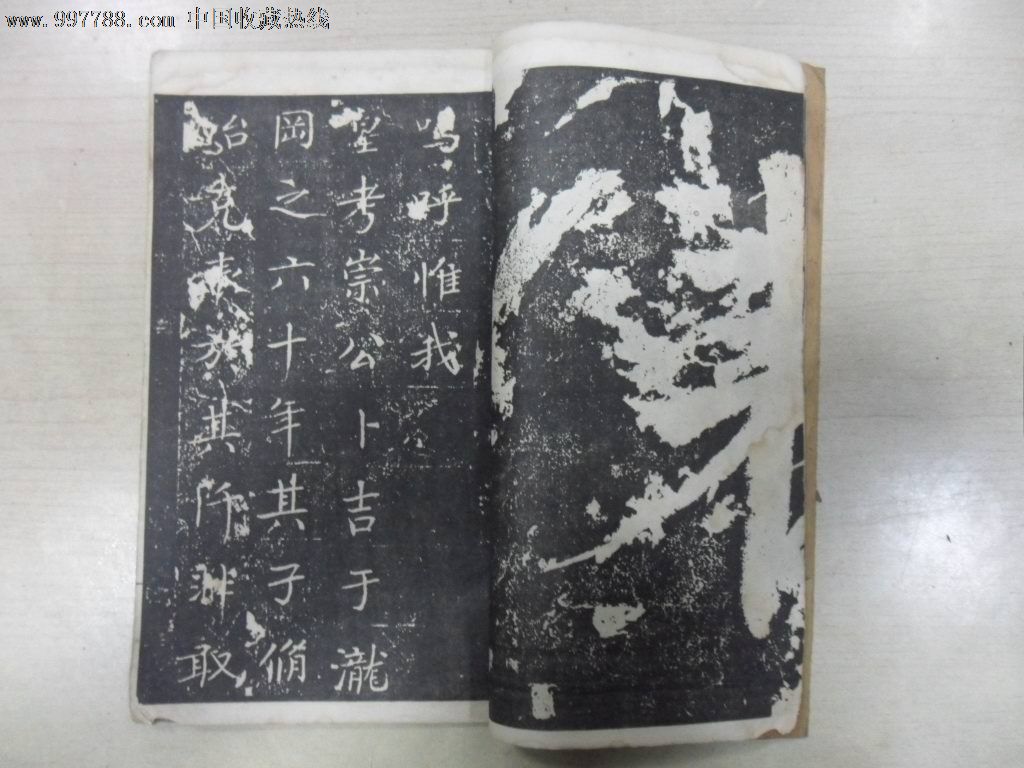 www.997788.com 中国收藏热线
嗚呼惟我
皇考崇公卜吉于瀧
岡之六十年其子脩
始克表於其阡非敢